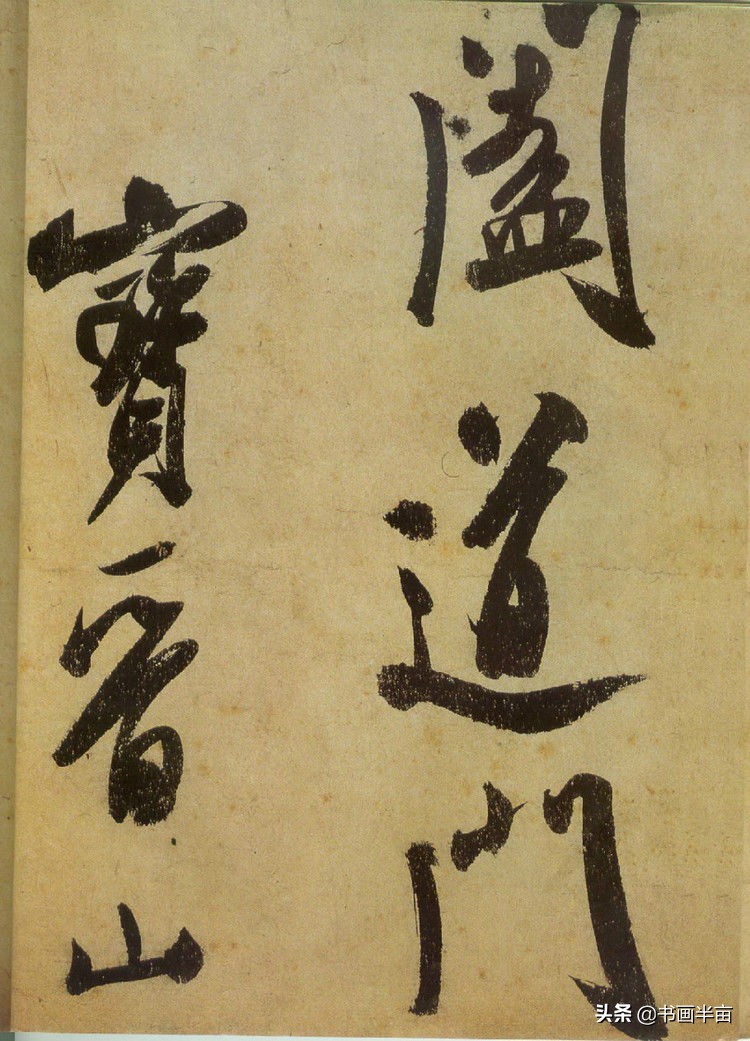 闔道門
寶晉山
头条 @书画半亩